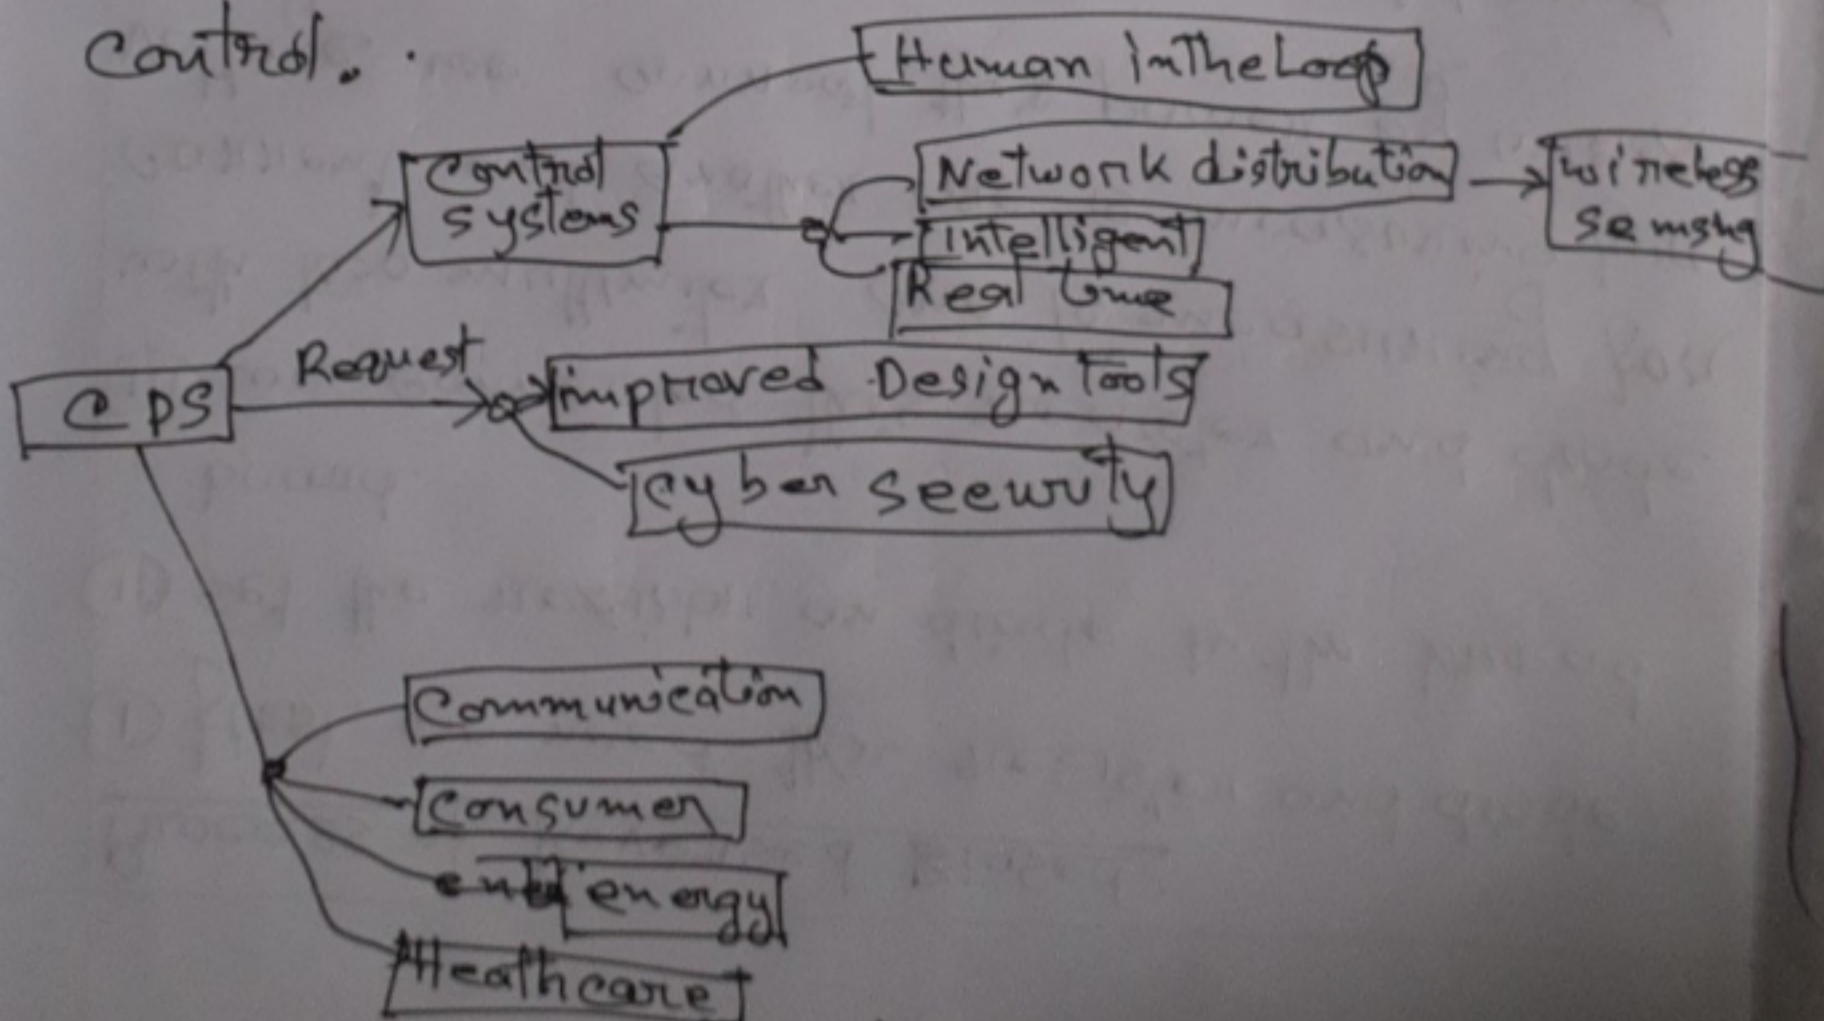 Control.
Human inTheLoop
Control
systems
Network distribution
wireless
semsing
Intelligent
Real time
Request
CPS
improved Design Tools
cyber seecurity
Communication
Consumer
energy
Heathcare